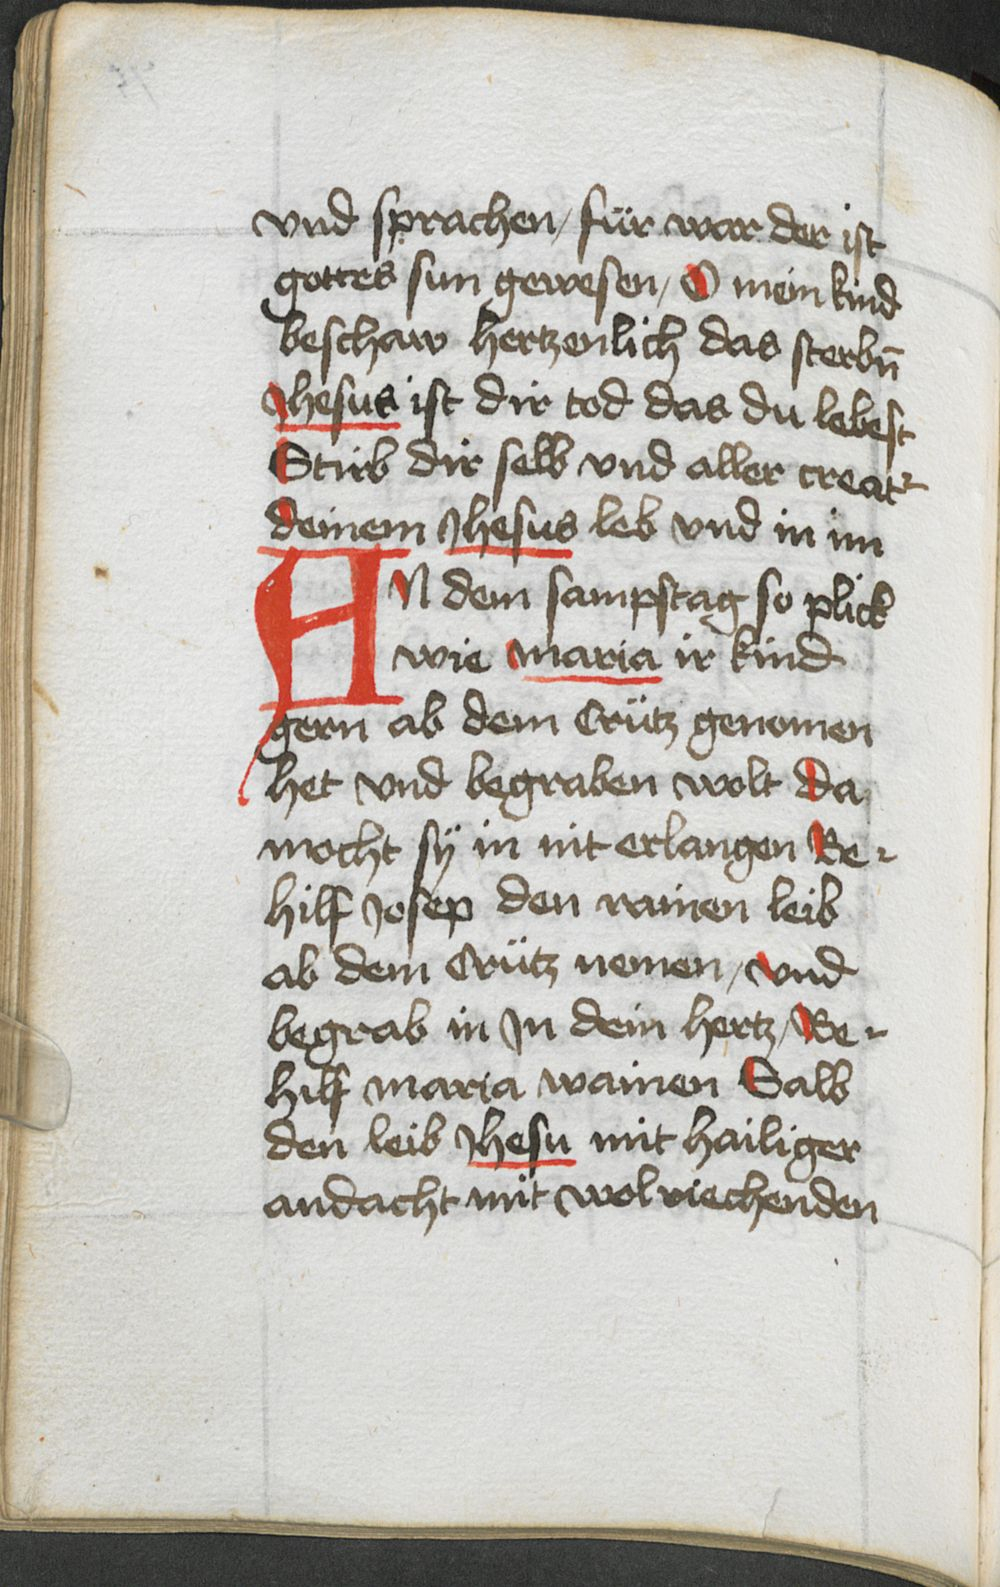 vnd sprachen / für war der ist
gottes sun gewesen / O mein kind
beschaw hertzenlich das sterbn̄
Jhesus ist dir tod das du lebest
Stirb dir selb vnd aller creat᷑
deinem Jhesus leb vnd in im
AN dem sampstag so plick
wie maria ir kind
gern ab dem Crütz genomen
het vnd begraben wolt Da
mocht sÿ in nit erlangen Be-
hilf Josep den rainen leib
ab dem Crütz nemen / vnd
begrab in Jn dein hertz / Be-
hilf maria wainen Salb
den leib Jhesu mit hailiger
andacht mit wol riechenden